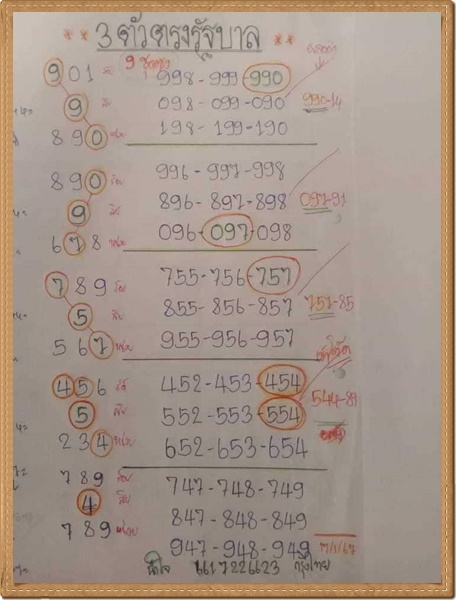 ** 3 ตัวตรงรัฐบาล **
901 9 998-999-990
9 098-099-090 990-14
890 198-199-190
890 996-997-998
9 896-897-898 097-91
678 096-097-098
789 755-756-757
5 855-856-857 757-85
567 955-956-957
456 452-453-454
5 552-553-554 544-89
234 652-653-654
789 747-748-749
4 847-848-849
789 947-948-949
6617226623 กรุงไทย